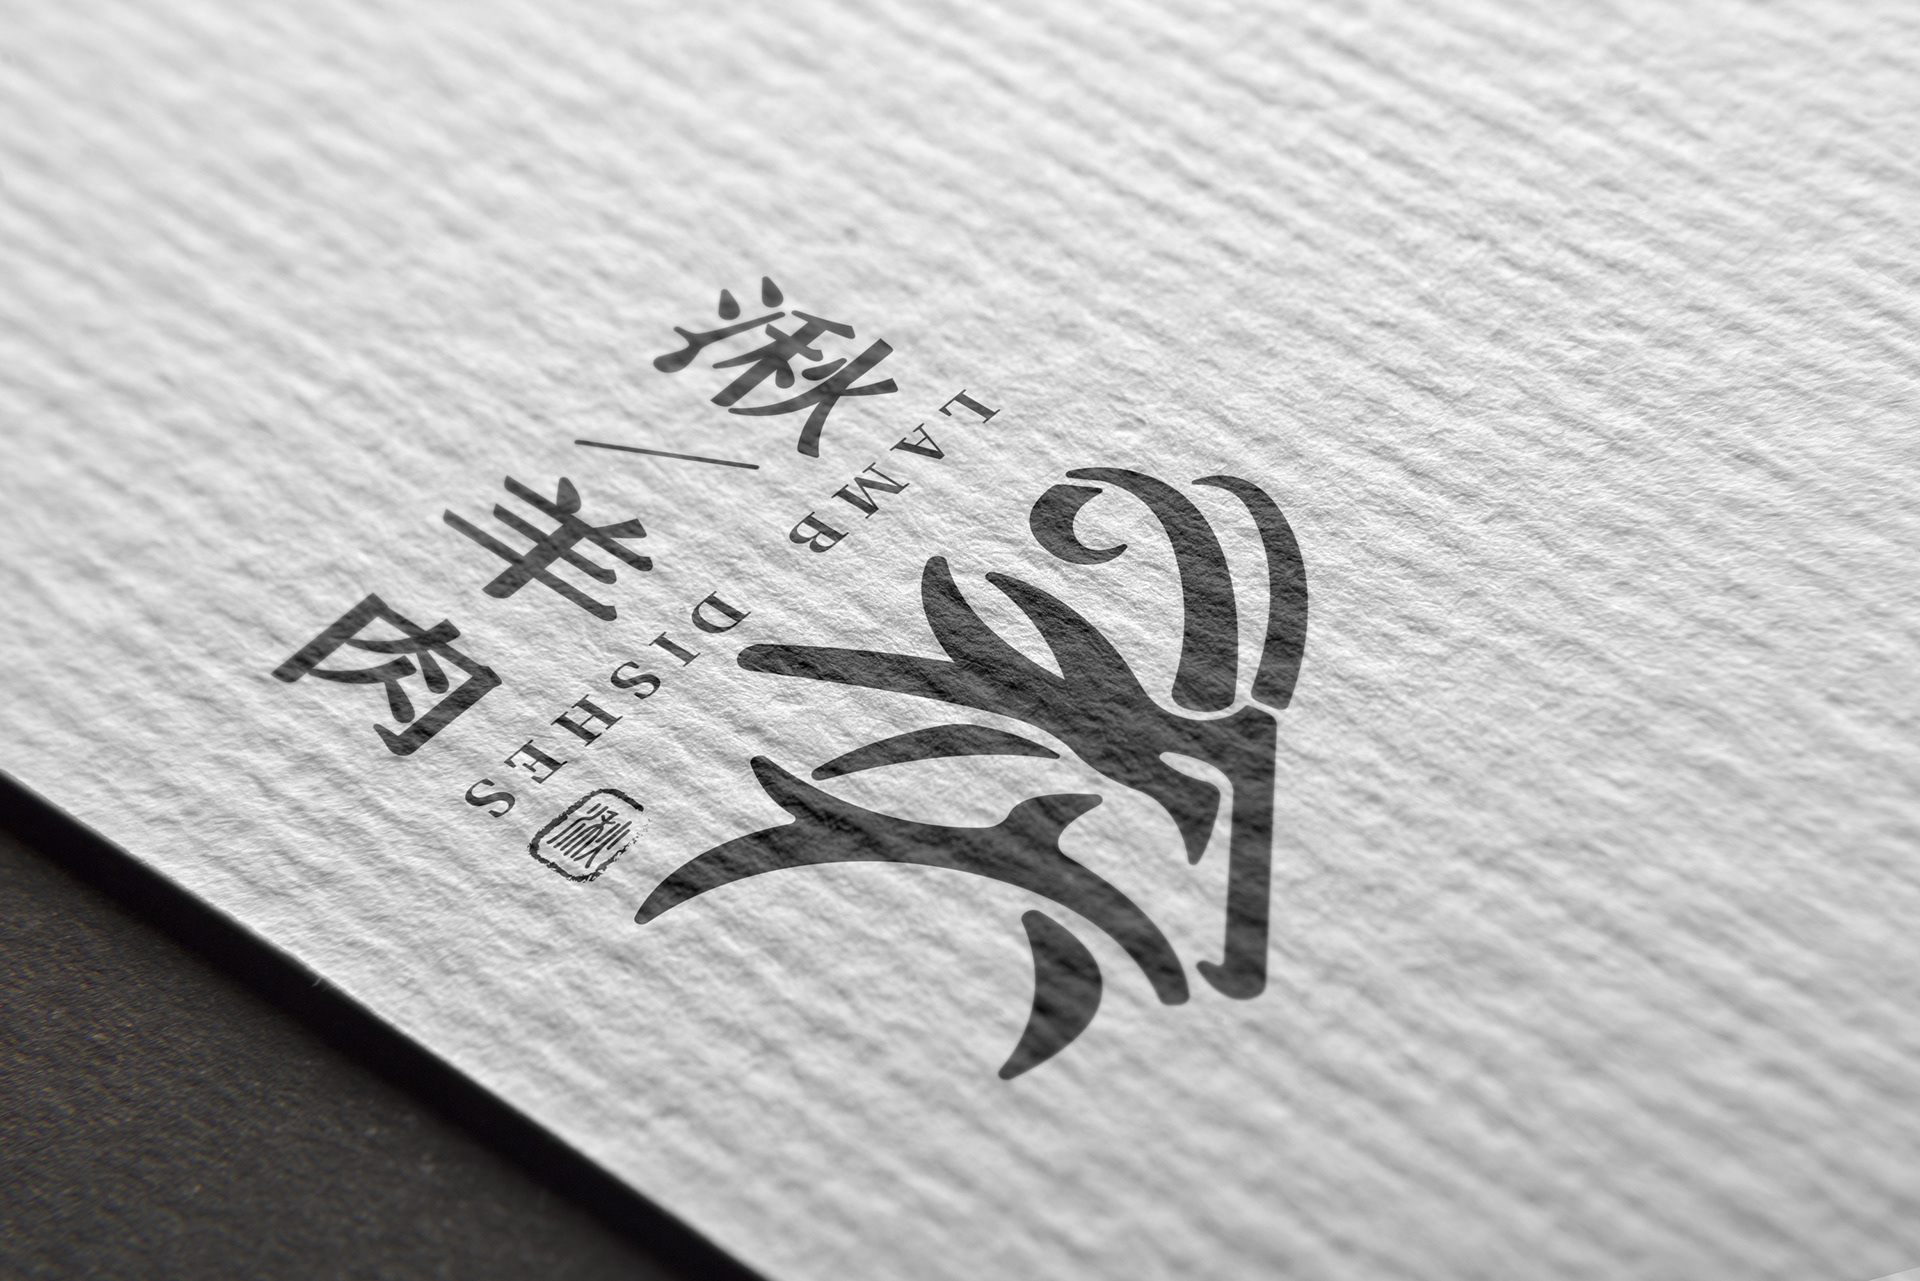 湫/羊肉
LAMB DISHES